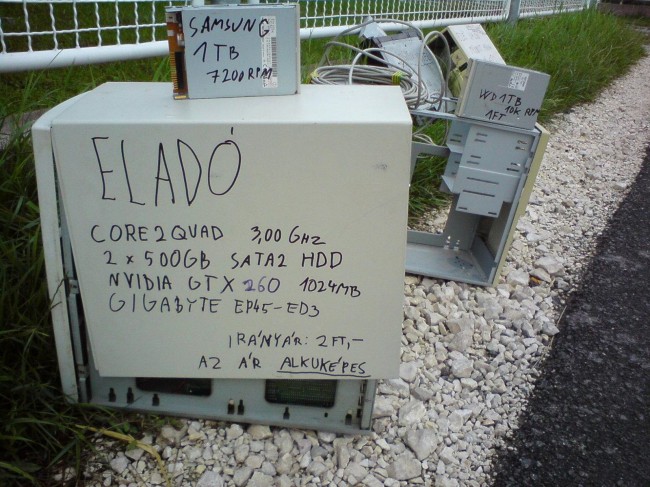 SAMSUNG
1TB
7200RPM
WD 1TB
10K RPM
1FT
ELADÓ
CORE2QUAD 3,00 GHz
2 x 500GB SATA2 HDD
NVIDIA GTX 260 1024MB
GIGABYTE EP45-ED3
IRÁNYÁR: 2FT,-
AZ ÁR ALKUKÉPES